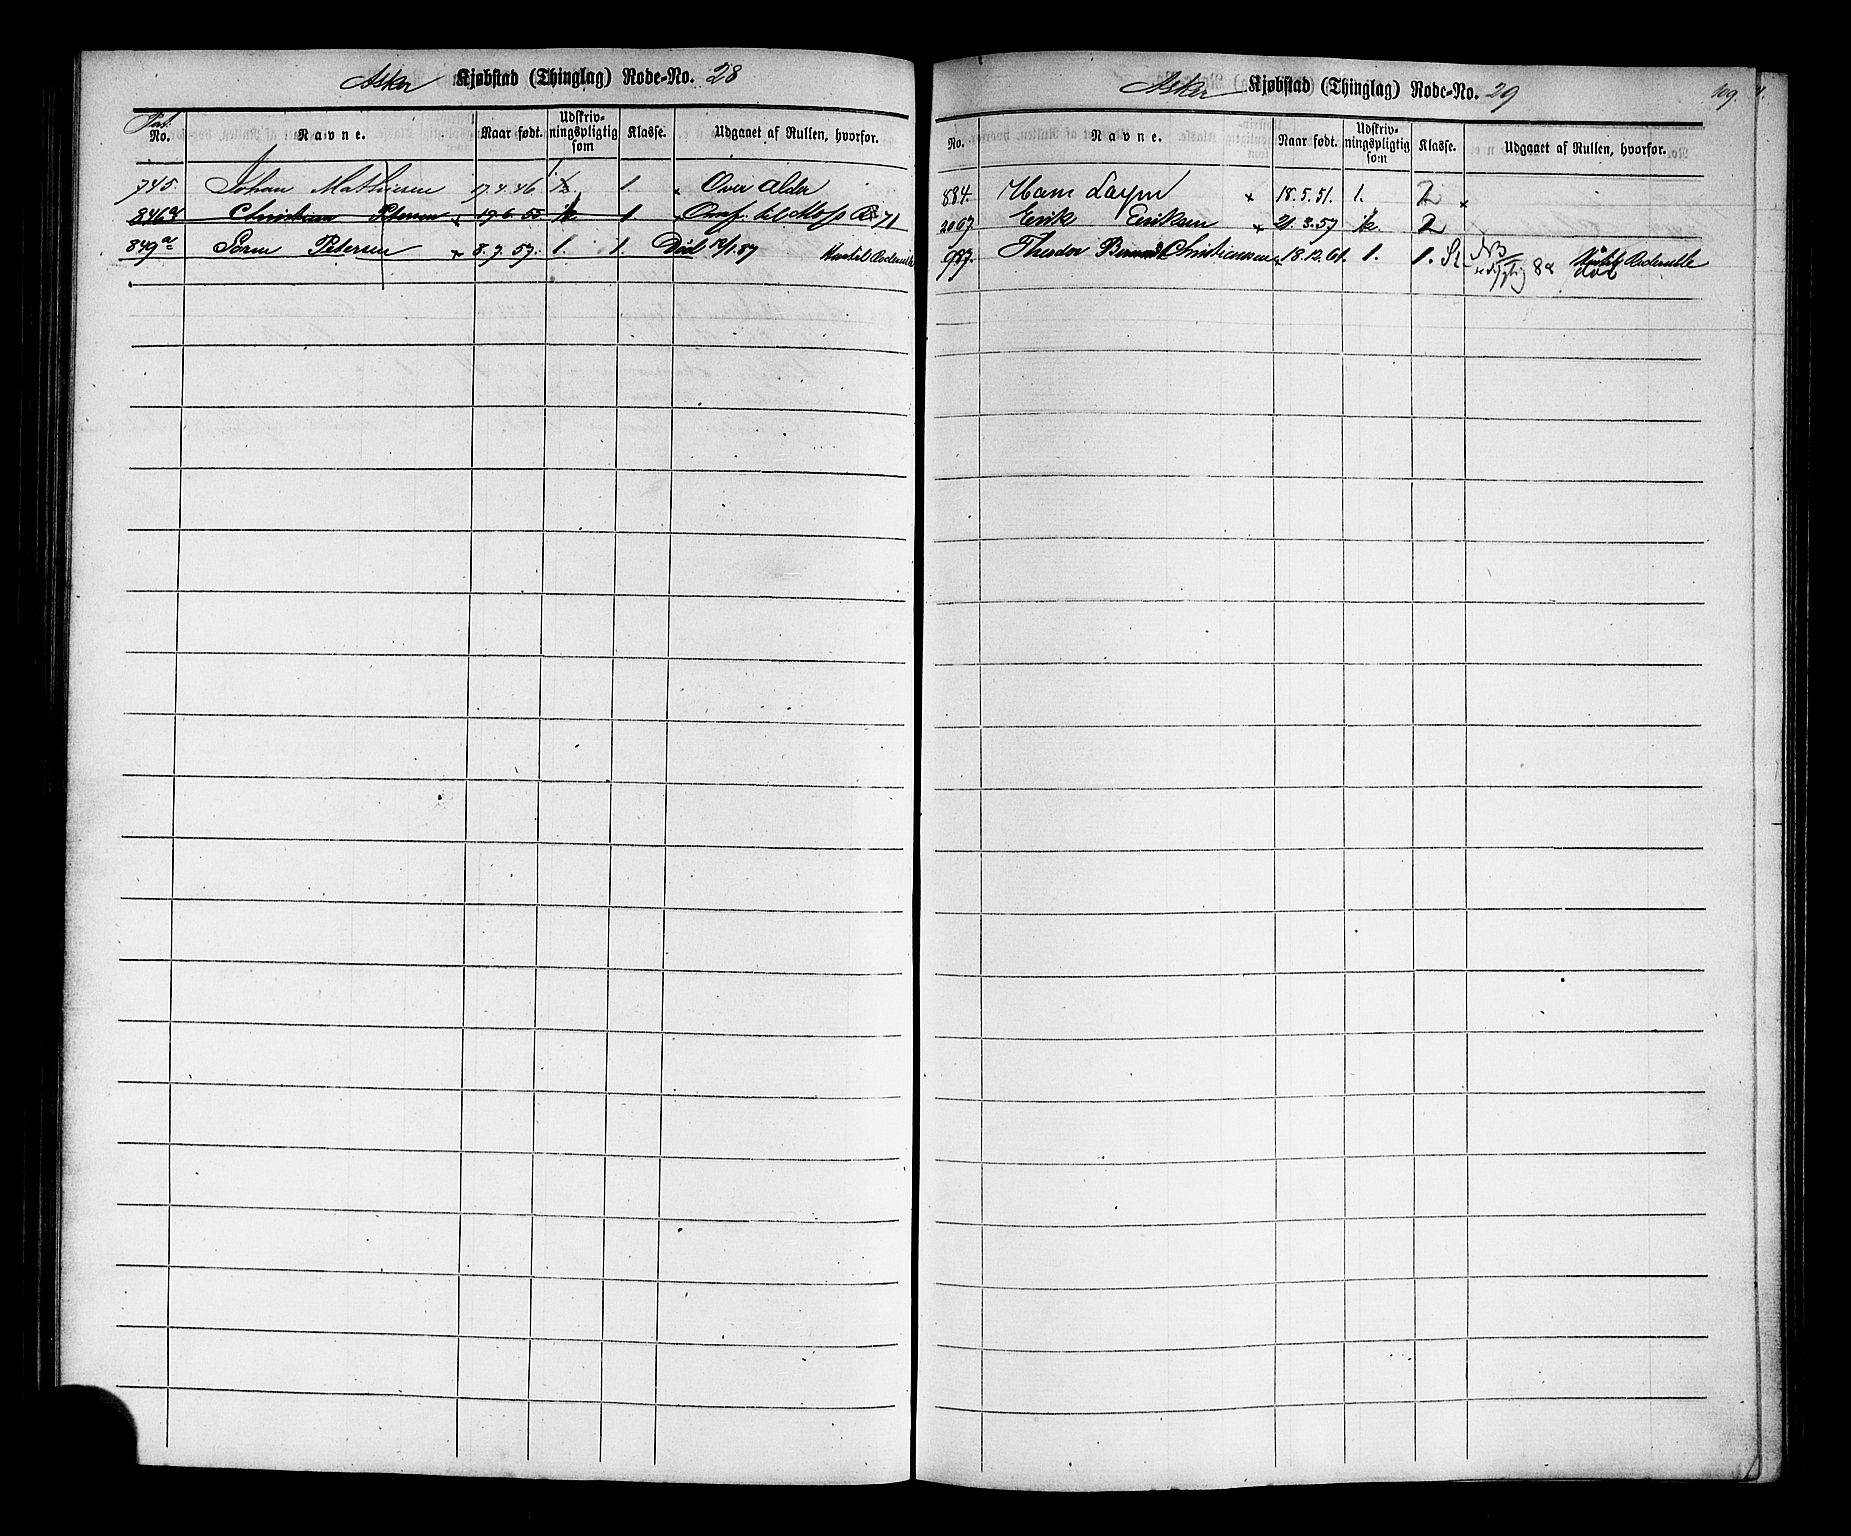 Asker Kjøbstad (Thinglag) Rode-No. 28
Pat. No. Navne. Naar født. Udskriv- ningspligtig som Klasse. Udgaaet af Rullen, hvorfor.
745. Johan Mathisen 17.4.46 1. Over alder
846a Christian Petersen 19.6.55 1. Overf. til Moss R 71
849a Søren Petersen 8.7.57. 1. 1. Død 12/1.87
Asker Kjøbstad (Thinglag) Rode-No. 29
109.
No. Navne. Naar født. Udskriv- ningspligtig som Klasse. Udgaaet af Rullen, hvorfor.
884. Hans 18.5.51. 1. 2
2067. Erik Eriksen 21.3.57 2
987. Theodor Bernardt Christiansen 18.12.61 1. 1. NB død